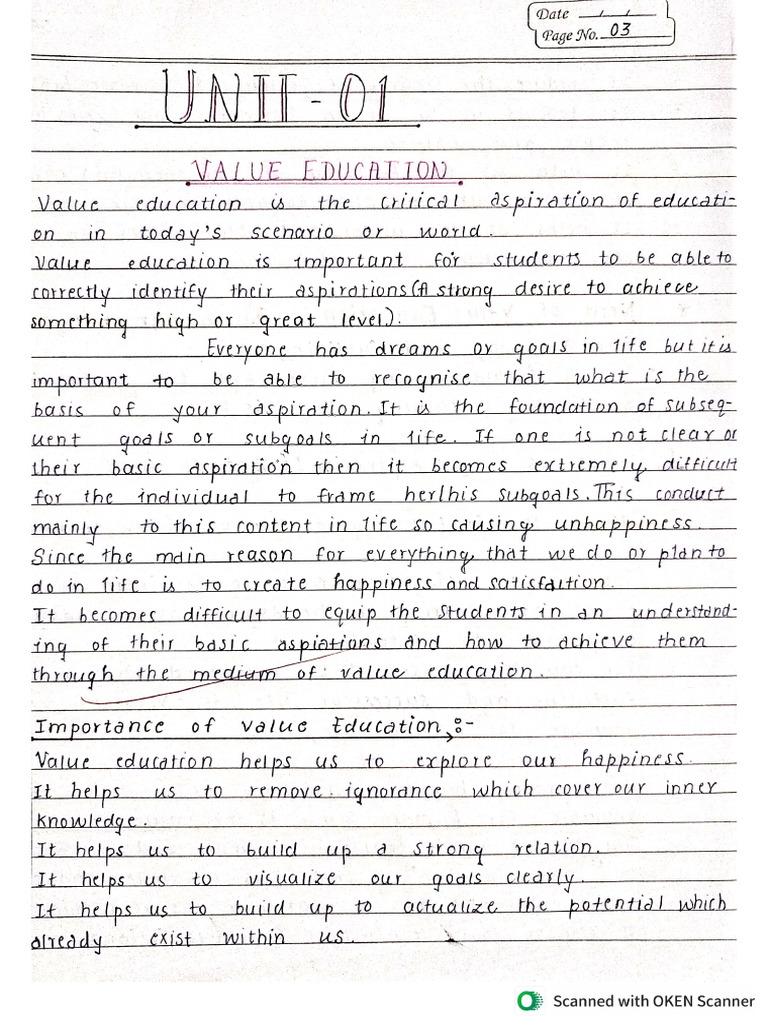 Date __/__/__
Page No. 03
UNIT-01
VALUE EDUCATION.
Value education is the critical aspiration of educati-
on in today's scenario or world.
Value education is important for students to be able to
correctly identify their aspirations(A strong desire to achieve
something high or great level).
Everyone has dreams or goals in life but it is
important to be able to recognise that what is the
basis of your aspiration. It is the foundation of subseq-
uent goals or subgoals in life. If one is not clear or
their basic aspiration then it becomes extremely difficult
for the individual to frame her/his subgoals. This conduct
mainly to this content in life so causing unhappiness.
Since the main reason for everything that we do or plan to
do in life is to create happiness and satisfaition.
It becomes difficult to equip the students in an understand-
ing of their basic aspiations and how to achieve them
through the medium of value education.
Importance of value Education :-
Value education helps us to explore our happiness.
It helps us to remove ignorance which cover our inner
knowledge.
It helps us to build up a strong relation.
It helps us to visualize our goals clearly.
It helps us to build up to actualize the potential which
already exist within us.
Scanned with OKEN Scanner